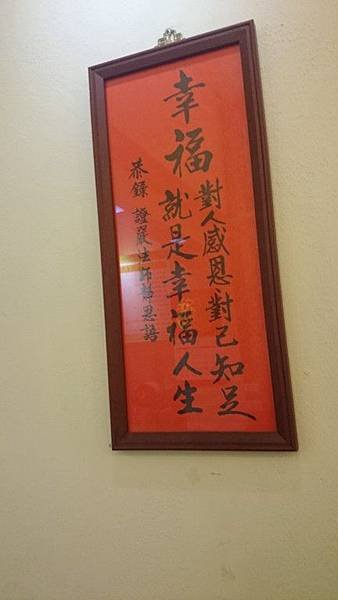 幸福
對人感恩、對己知足
就是幸福人生
恭錄 證嚴法師靜思語